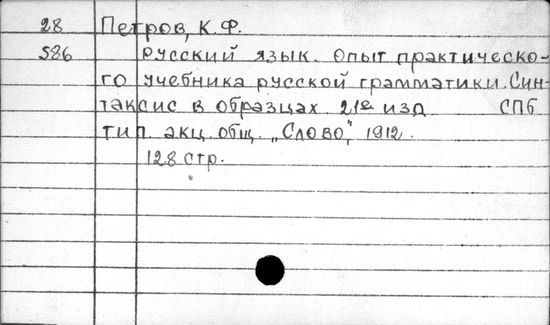 28 Петров, К. Ф.
586 Русский язык. Опыт практическо-
го учебника русской грамматики. Син-
таксис в образцах 21е изд СПб
тип. акц. общ. „Слово", 1912.
128 стр.